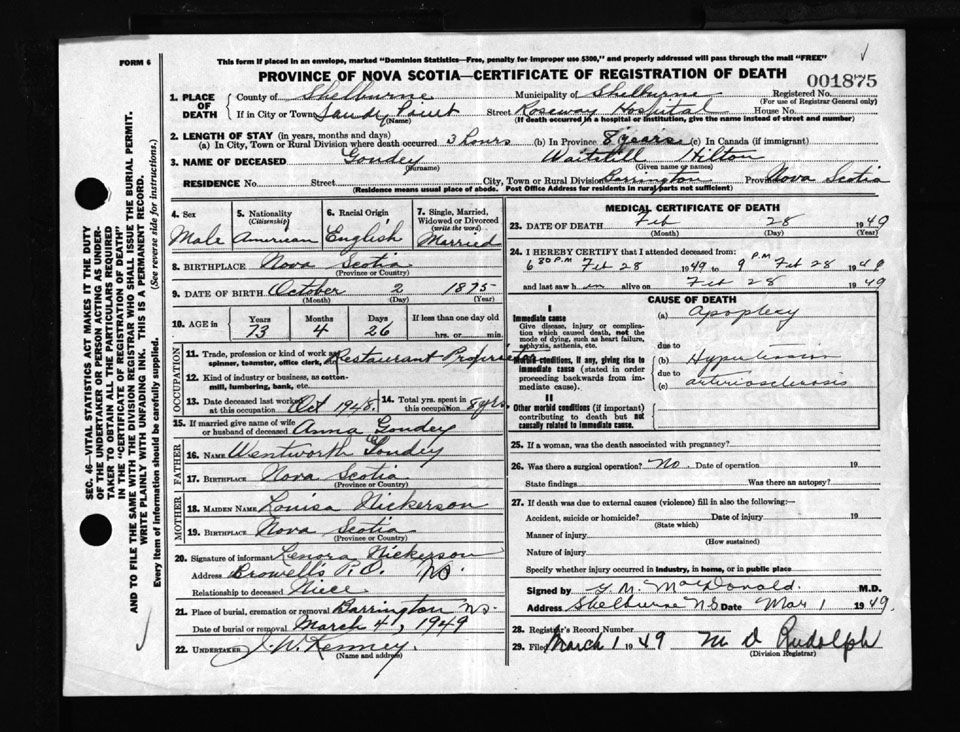 FORM 6
This form if placed in an envelope, marked "Dominion Statistics—Free, penalty for improper use $300," and properly addressed will pass through the mail "FREE"
PROVINCE OF NOVA SCOTIA—CERTIFICATE OF REGISTRATION OF DEATH
001875
1. PLACE OF DEATH
County of Shelburne Municipality of Shelburne Registered No.
(For use of Registrar General only)
If in City or Town Sandy Point Street Roseway Hospital House No.
(Name) (If death occurred in a hospital or institution, give the name instead of street and number)
2. LENGTH OF STAY (in years, months and days)
(a) In City, Town or Rural Division where death occurred 3 hours (b) In Province 8 years (c) In Canada (if immigrant)
3. NAME OF DECEASED Goudey Waitstill Hilton
(Surname) (Given name or names)
RESIDENCE No. Street City, Town or Rural Division Barrington Province Nova Scotia
(Residence means usual place of abode. Post Office Address for residents in rural parts not sufficient)
4. Sex
Male
5. Nationality (Citizenship)
American
6. Racial Origin
English
7. Single, Married, Widowed or Divorced (write the word)
Married
8. BIRTHPLACE Nova Scotia
(Province or Country)
9. DATE OF BIRTH October 2 1875
(Month) (Day) (Year)
10. AGE in
Years Months Days If less than one day old
73 4 26 hrs. or min.
OCCUPATION
11. Trade, profession or kind of work as spinner, teamster, office clerk, etc. Restaurant Proprietor
12. Kind of industry or business, as cotton-mill, lumbering, bank, etc.
13. Date deceased last worked at this occupation Oct 1948.
14. Total yrs. spent in this occupation 8 yrs.
15. If married give name of wife or husband of deceased Anna Goudey
FATHER
16. NAME Wentworth Goudey
17. BIRTHPLACE Nova Scotia
(Province or Country)
MOTHER
18. MAIDEN NAME Louisa Nickerson
19. BIRTHPLACE Nova Scotia
(Province or Country)
20. Signature of informant Lenora Nickerson
Address P.O. NS.
Relationship to deceased Niece
21. Place of burial, cremation or removal Barrington NS.
Date of burial or removal March 4, 1949
22. UNDERTAKER J. W. Kenney
(Name and address)
MEDICAL CERTIFICATE OF DEATH
23. DATE OF DEATH Feb 28 1949
(Month) (Day) (Year)
24. I HEREBY CERTIFY that I attended deceased from:
6 30 P.M Feb 28 1949 to 9 P.M Feb 28 1949
and last saw h im alive on Feb 28 1949
CAUSE OF DEATH
I
Immediate cause
Give disease, injury or complication which caused death, not the mode of dying, such as heart failure, asphyxia, asthenia, etc.
(a) Apoplexy
due to
Morbid conditions, if any, giving rise to immediate cause (stated in order proceeding backwards from immediate cause).
(b) Hypertension
due to
(c) arteriosclerosis
II
Other morbid conditions (if important) contributing to death but not causally related to immediate cause.
25. If a woman, was the death associated with pregnancy?
26. Was there a surgical operation? No Date of operation 19
State findings Was there an autopsy?
27. If death was due to external causes (violence) fill in also the following:—
Accident, suicide or homicide? Date of injury 19
(State which)
Manner of injury
(How sustained)
Nature of injury
Specify whether injury occurred in industry, in home, or in public place
Signed by MacDonald M.D.
Address Shelburne NS Date Mar 1 1949.
28. Registrar's Record Number
29. Filed March 1 1949 M D Rudolph
(Division Registrar)
SEC. 46—VITAL STATISTICS ACT MAKES IT THE DUTY
OF THE UNDERTAKER OR PERSON ACTING AS UNDER-
TAKER TO OBTAIN ALL THE PARTICULARS REQUIRED
IN THE "CERTIFICATE OF REGISTRATION OF DEATH"
AND TO FILE THE SAME WITH THE DIVISION REGISTRAR WHO SHALL ISSUE THE BURIAL PERMIT.
WRITE PLAINLY WITH UNFADING INK. THIS IS A PERMANENT RECORD.
Every item of information should be carefully supplied. (See reverse side for instructions.)